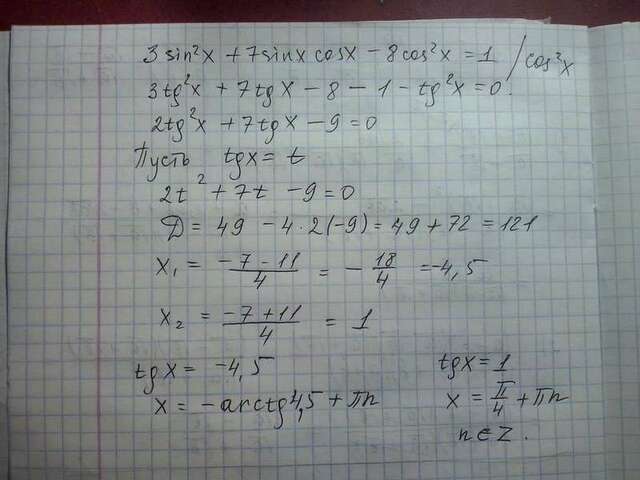 3 sin²x + 7 sinx cosx − 8 cos²x = 1 / cos²x
3 tg²x + 7 tgx − 8 − 1 − tg²x = 0.
2tg²x + 7tgx − 9 = 0
Пусть tgx = t
2t² + 7t − 9 = 0
Д = 49 − 4·2(−9) = 49 + 72 = 121
x₁ = (−7 − 11)/4 = −18/4 = −4,5
x₂ = (−7 + 11)/4 = 1
tgx = −4,5
x = −arctg4,5 + πn
tgx = 1
x = π/4 + πn
n ∈ Z.